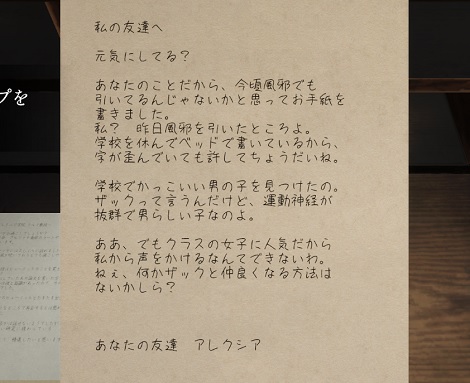 私の友達へ
元気にしてる?
あなたのことだから、今頃風邪でも
引いてるんじゃないかと思ってお手紙を
書きました。
私? 昨日風邪を引いたところよ。
学校を休んでベッドで書いているから、
字が歪んでいても許してちょうだいね。
学校でかっこいい男の子を見つけたの。
ザックって言うんだけど、運動神経が
抜群で男らしい子なのよ。
ああ、でもクラスの女子に人気だから
私から声をかけるなんてできないわ。
ねぇ、何かザックと仲良くなる方法は
ないかしら?
あなたの友達 アレクシア
プを